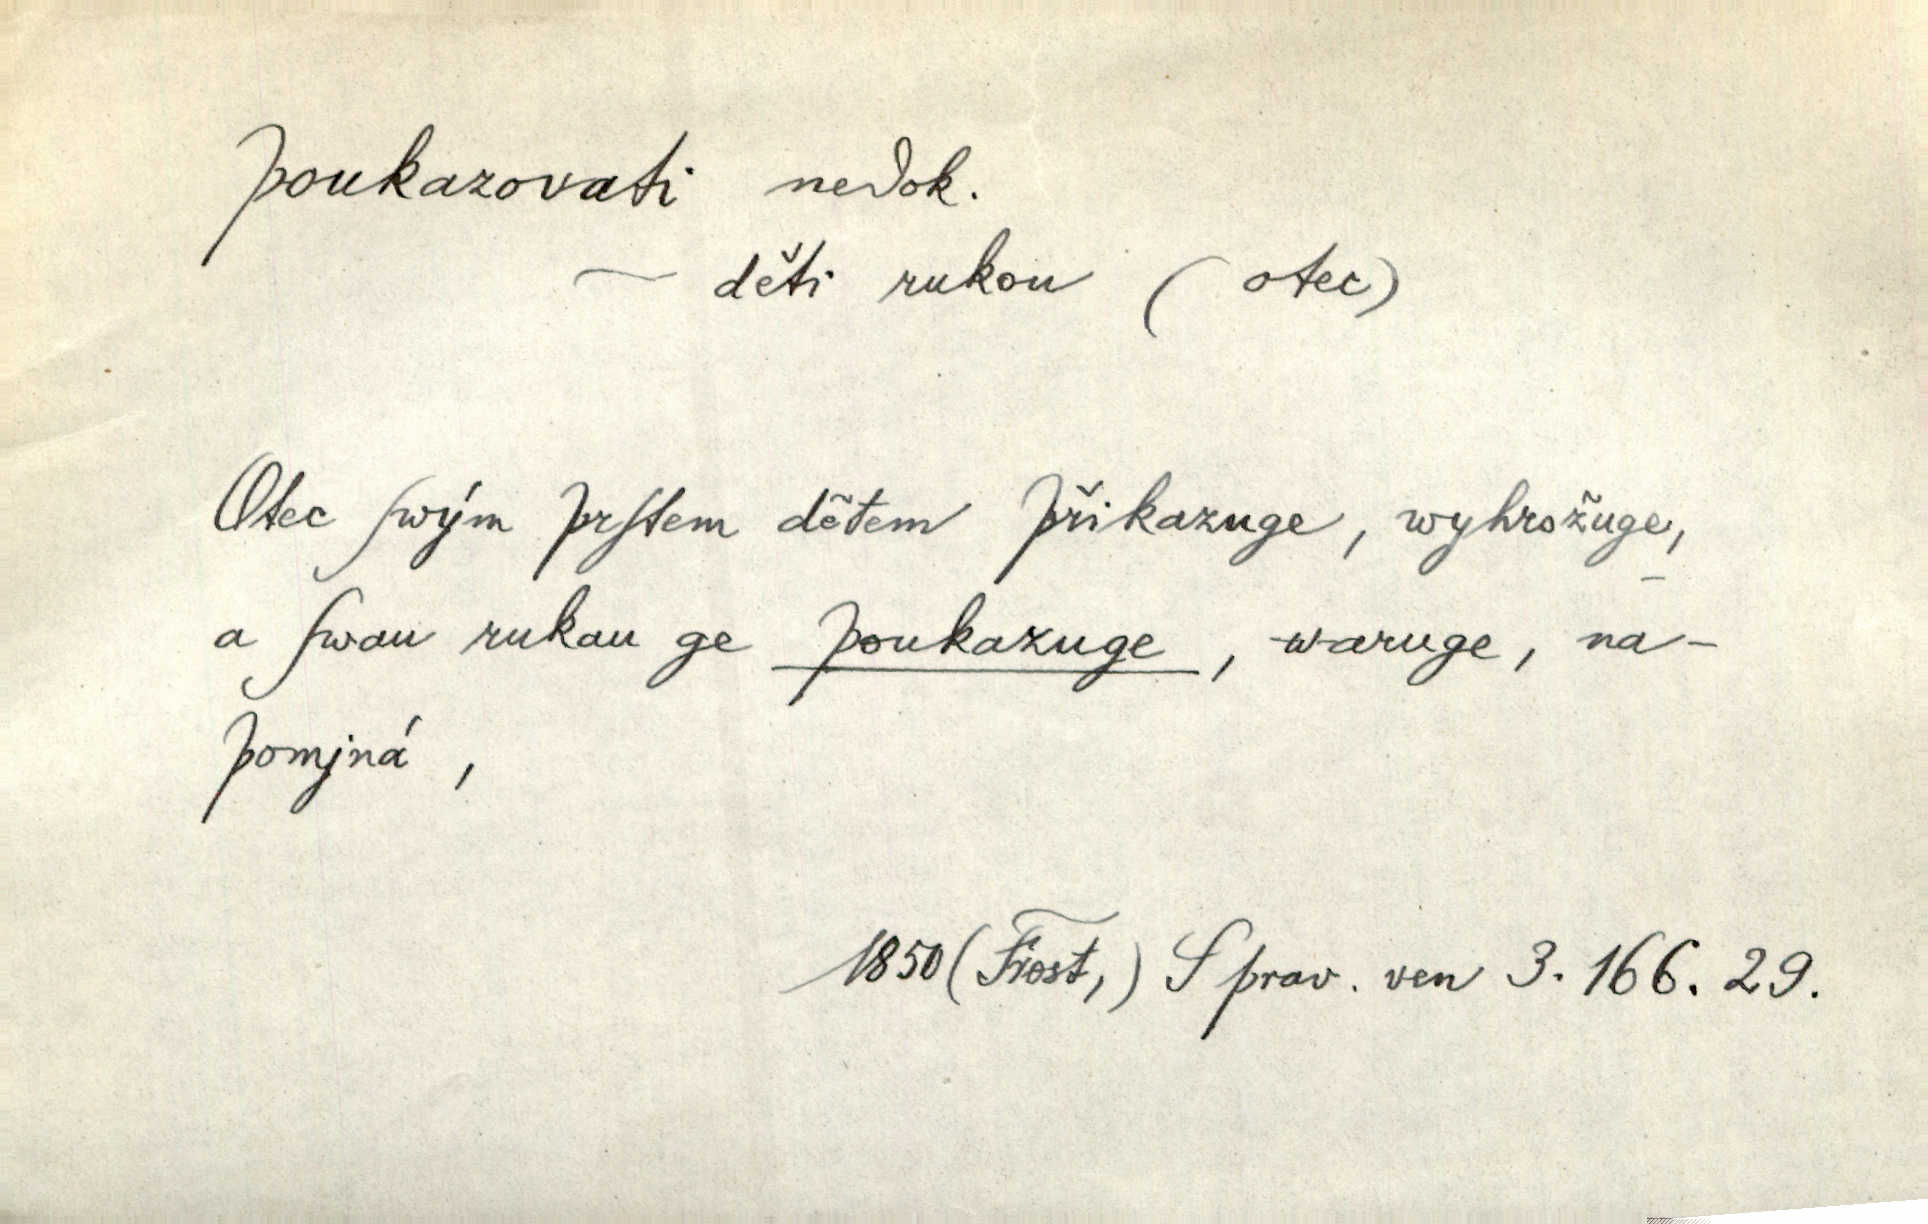 poukazovati nedok.
~ děti rukou (otec)
Otec ſwým prſtem dětem přikazuge, wyhrožuge,
a ſwau rukau ge poukazuge, waruge, na-
pomjná,
1850 (Frost,) Sprav. ven 3. 166. 29.